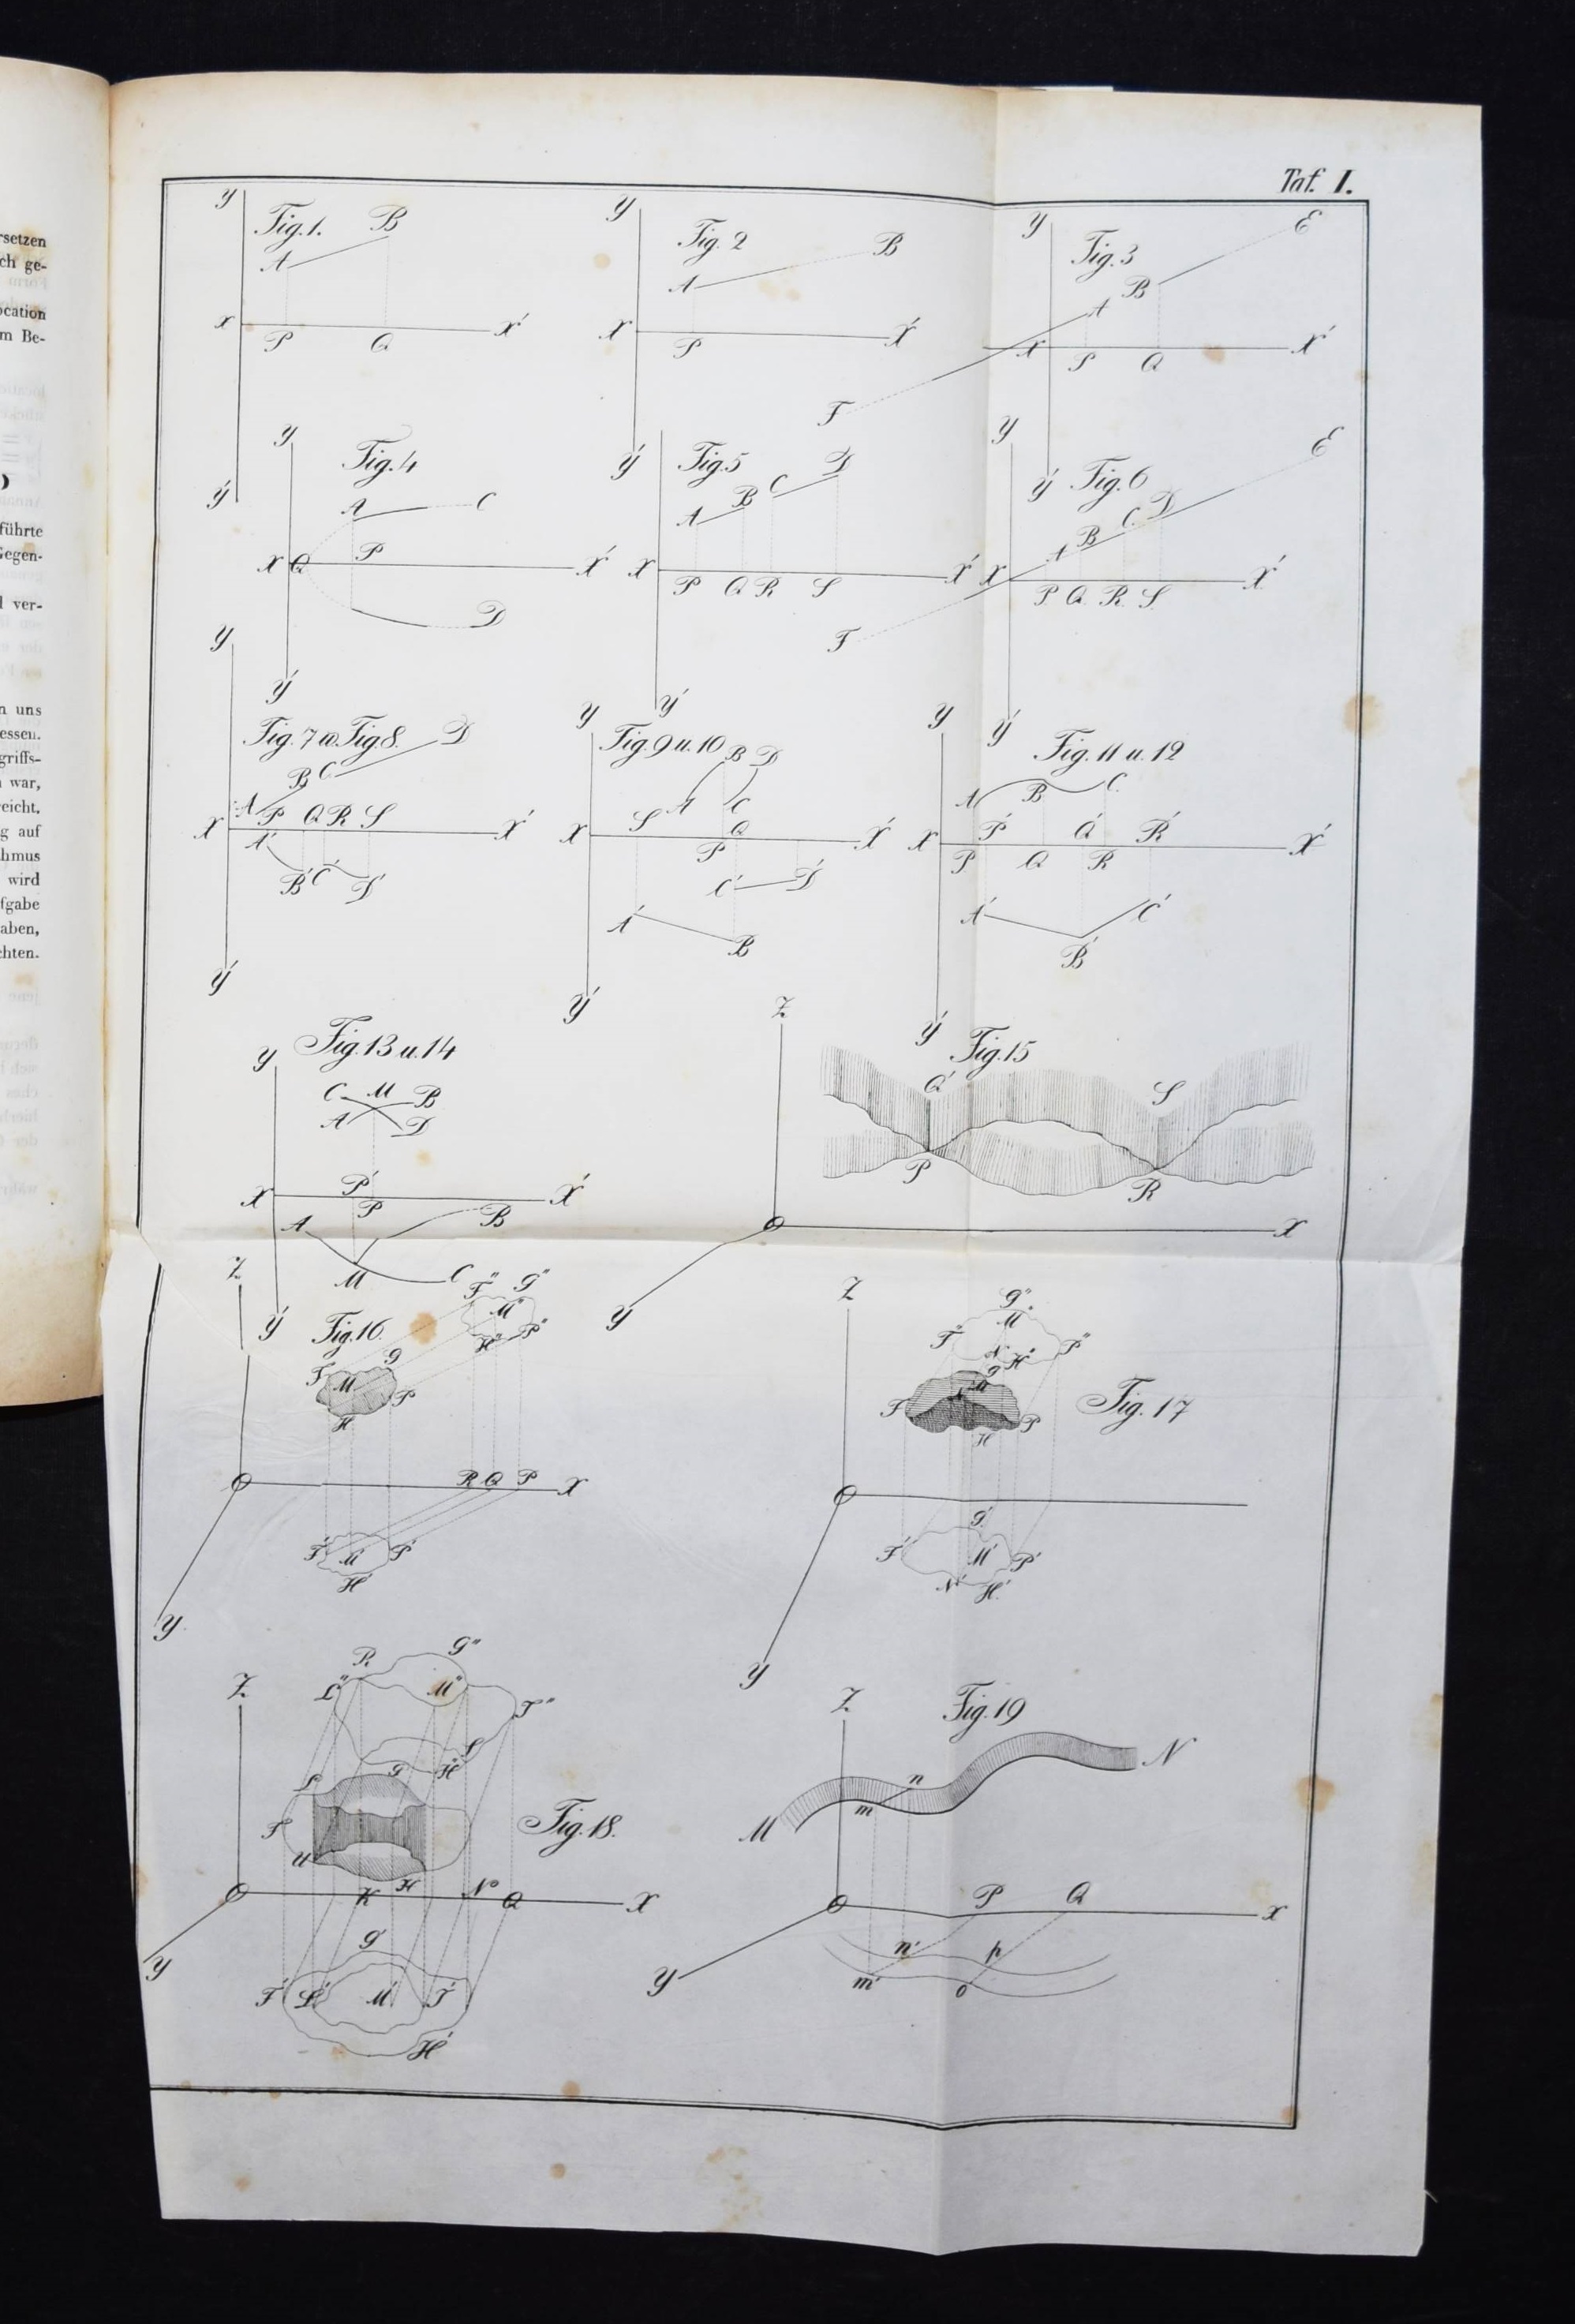 rsetzen
ch ge-
location
m Be-
führte
Gegen-
l ver-
n uns
essen.
griffs-
war,
reicht.
g auf
hmus
wird
fgabe
aben,
chten.
Taf. I.
Fig. 1.
y
A B
x P Q X'
y'
Fig. 2
y
A B
X P X'
y'
Fig. 3
y E
B
A
X P Q X'
F
y'
Fig. 4
y
A C
X Q P X'
D
y'
Fig. 5
A B C D
X P Q R S X'
y'
Fig. 6
y E
A B C D
X P Q R S X'
F
y'
Fig. 7 u. Fig 8.
y
A B C D
P Q R S
X X'
A' B' C' D'
y'
Fig. 9 u. 10
y
B D
A C
S Q
X P X'
C' D'
A' B
y'
Fig. 11 u. 12
y
A B C
P' Q' R'
X P Q R X'
A' B' C'
y'
Fig. 13 u. 14
y
C M B
A D
P'
X P X'
A B
M C
y'
Fig. 15
Z
Q' S
P R
O X
y
Fig. 16.
Z
F'' G''
M''
H'' P''
F G
M P
H
O R Q P X
F' M' P'
H'
y
Fig. 17
Z
G''
M''
F'' P''
N H''
G
F M P
H
O
G'
F' M' P'
N' H'
y
Fig. 18.
Z
R G''
L'' M''
T''
S
G H''
L
F
U
O K H N Q X
y
G'
F' L' M' T'
H'
Fig. 19
Z
N
n
M m
O P Q X
n' p
y m' o